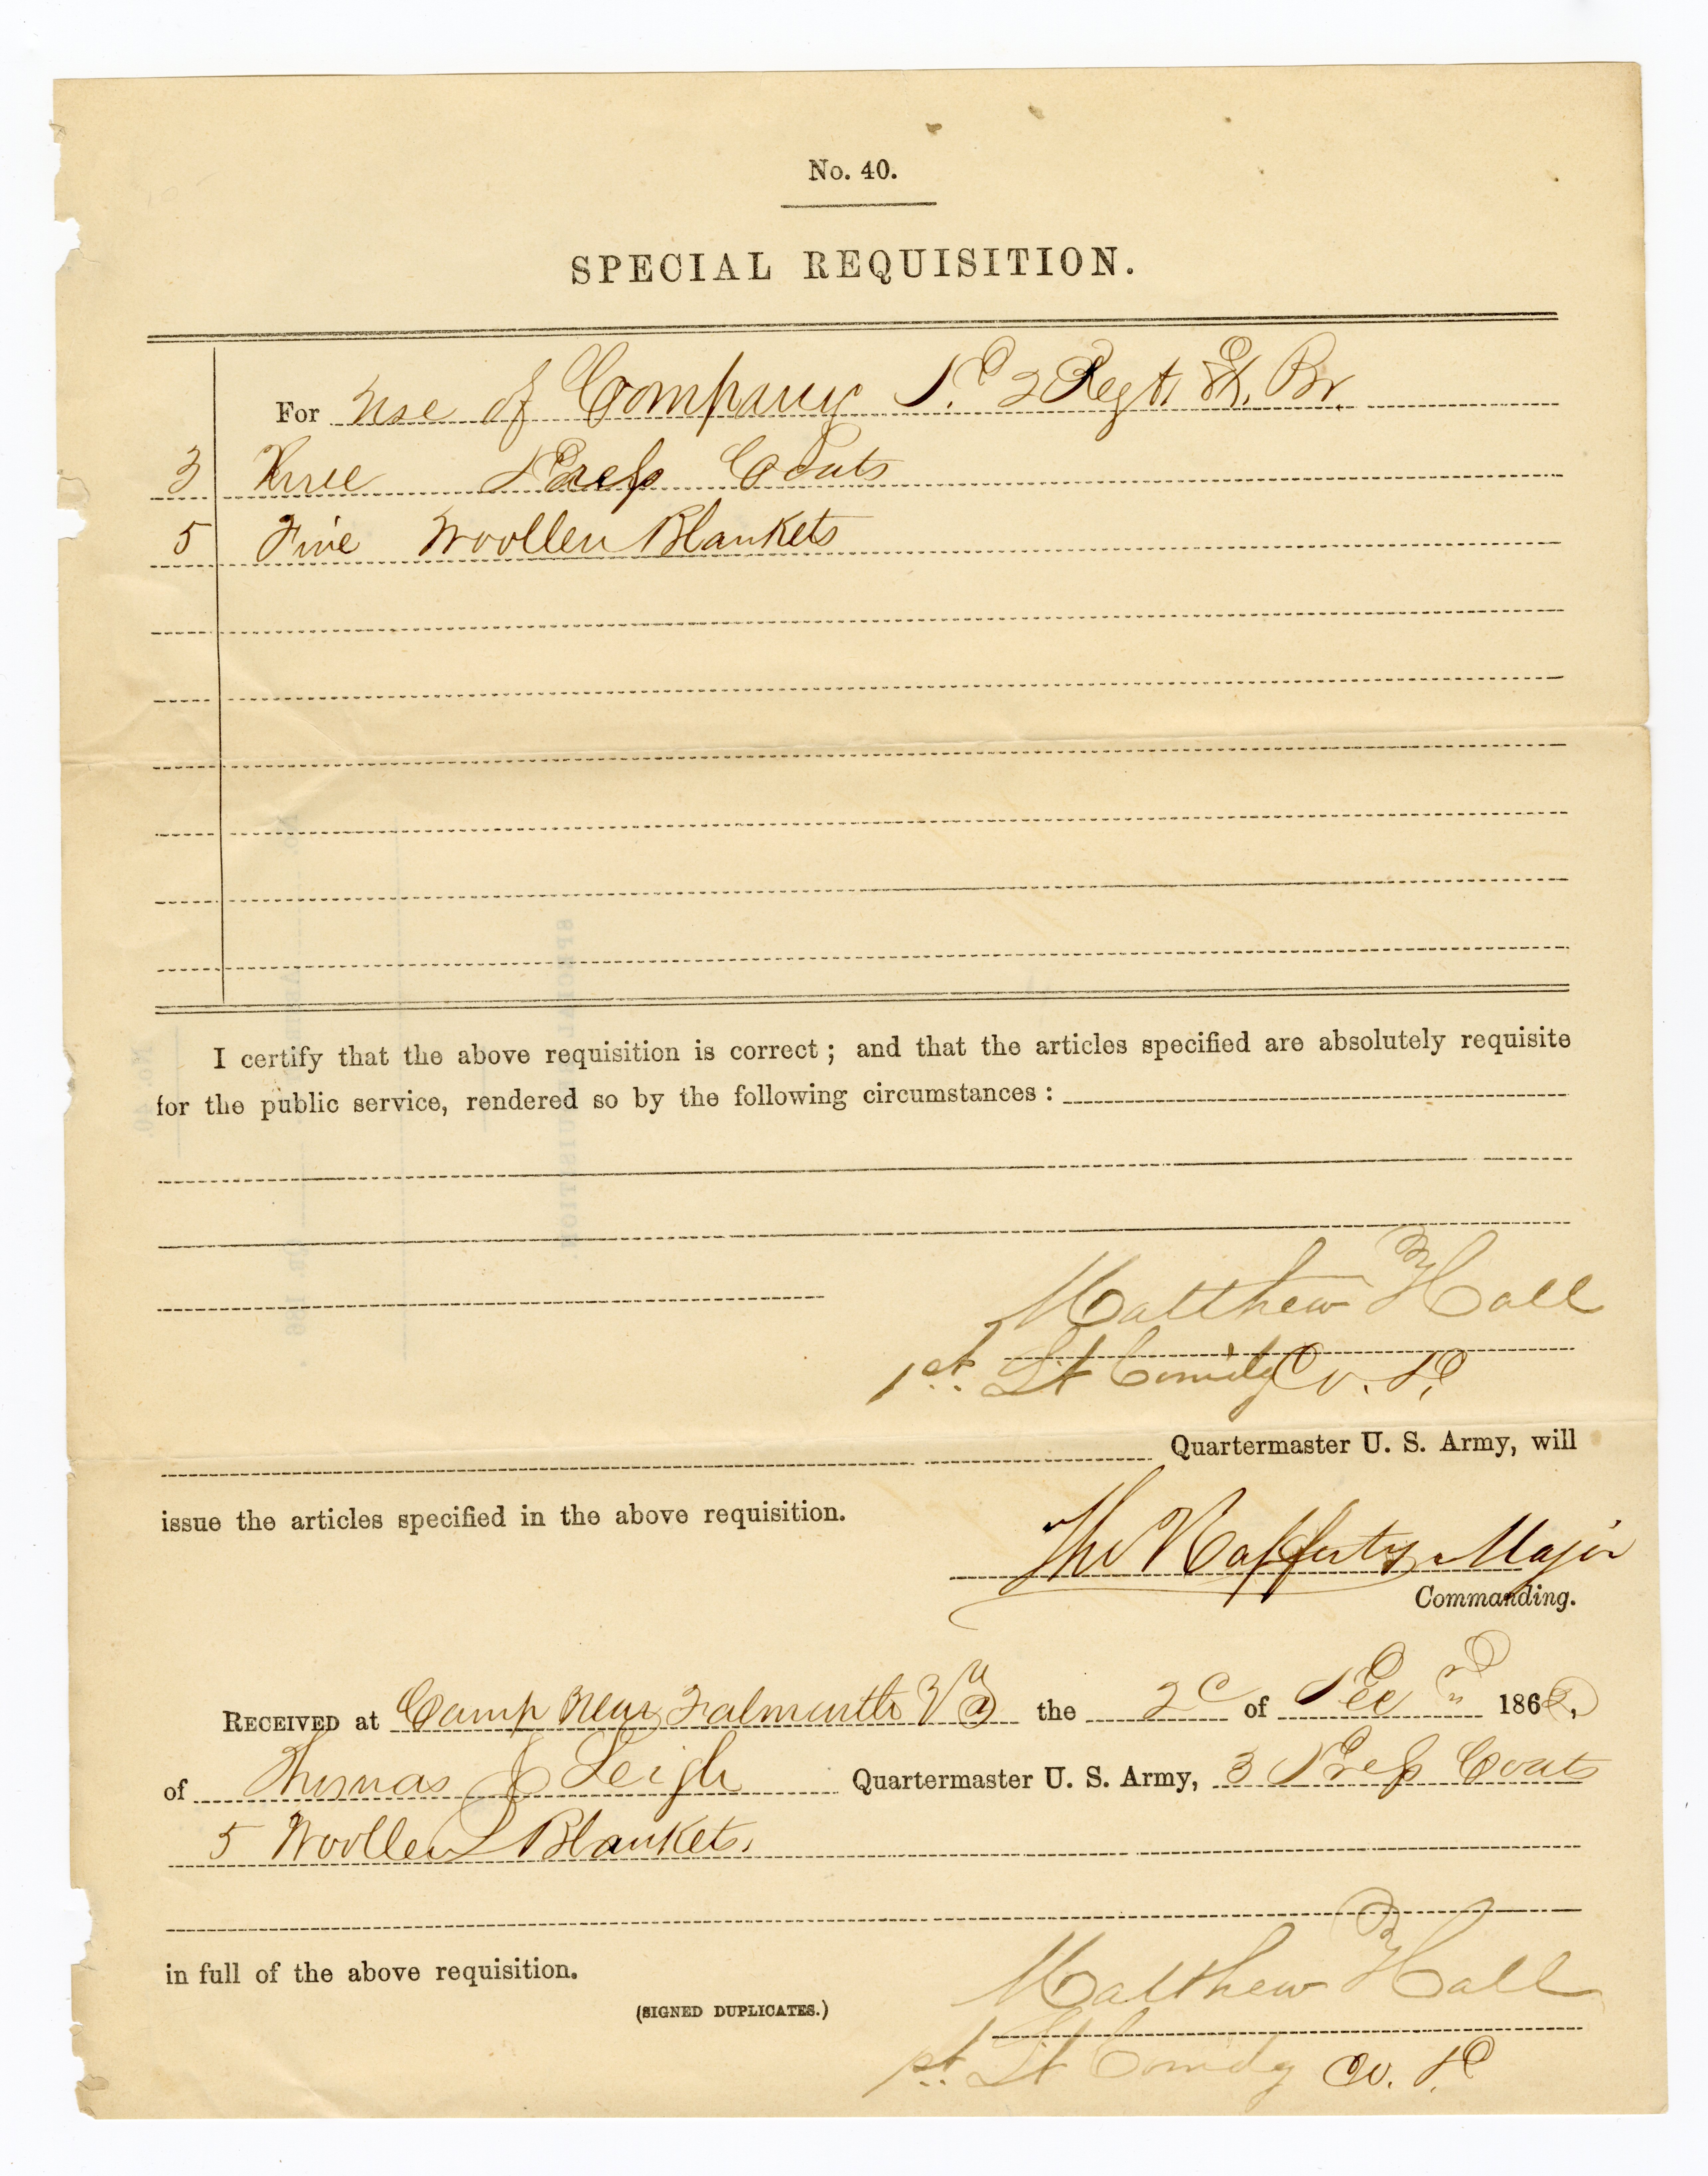 No. 40.
SPECIAL REQUISITION.
For Use of Company D. 2 Regt. Ex. Br.
3 Three Dress Coats
5 Five Woollen Blankets
I certify that the above requisition is correct; and that the articles specified are absolutely requisite
for the public service, rendered so by the following circumstances:
Matthew Hall
1st. Lt Comdg Co. D.
Quartermaster U. S. Army, will
issue the articles specified in the above requisition.
Tho Rafferty Major
Commanding.
RECEIVED at Camp Near Falmouth Va the of Dec 1862,
of Thomas J Leigh Quartermaster U. S. Army, 3 Dress Coats
5 Woollen Blankets.
in full of the above requisition.
(SIGNED DUPLICATES.)
Matthew Hall
1st. Lt Comdg Co. D.